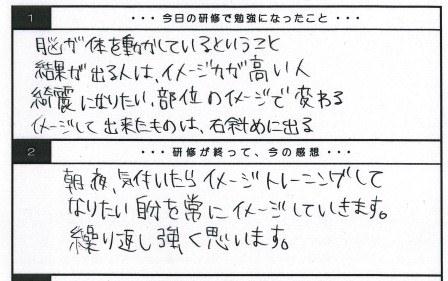 1 ・・・今日の研修で勉強になったこと・・・
脳が体を動かしているということ
結果が出る人は、イメージ力が高い人
綺麗になりたい、部位のイメージで変わる
イメージして出来たものは、右斜めに出る
2 ・・・研修が終って、今の感想・・・
朝、夜、気付いたらイメージトレーニングして
なりたい自分を常にイメージしていきます。
繰り返し強く思います。